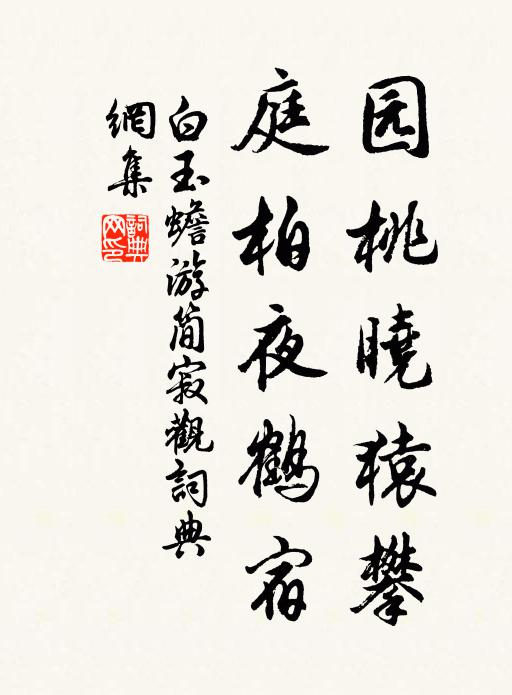 园桃曉猿攀
庭柏夜鶴宿
白玉蟾游簡寂觀詞典
網集
詞典網印